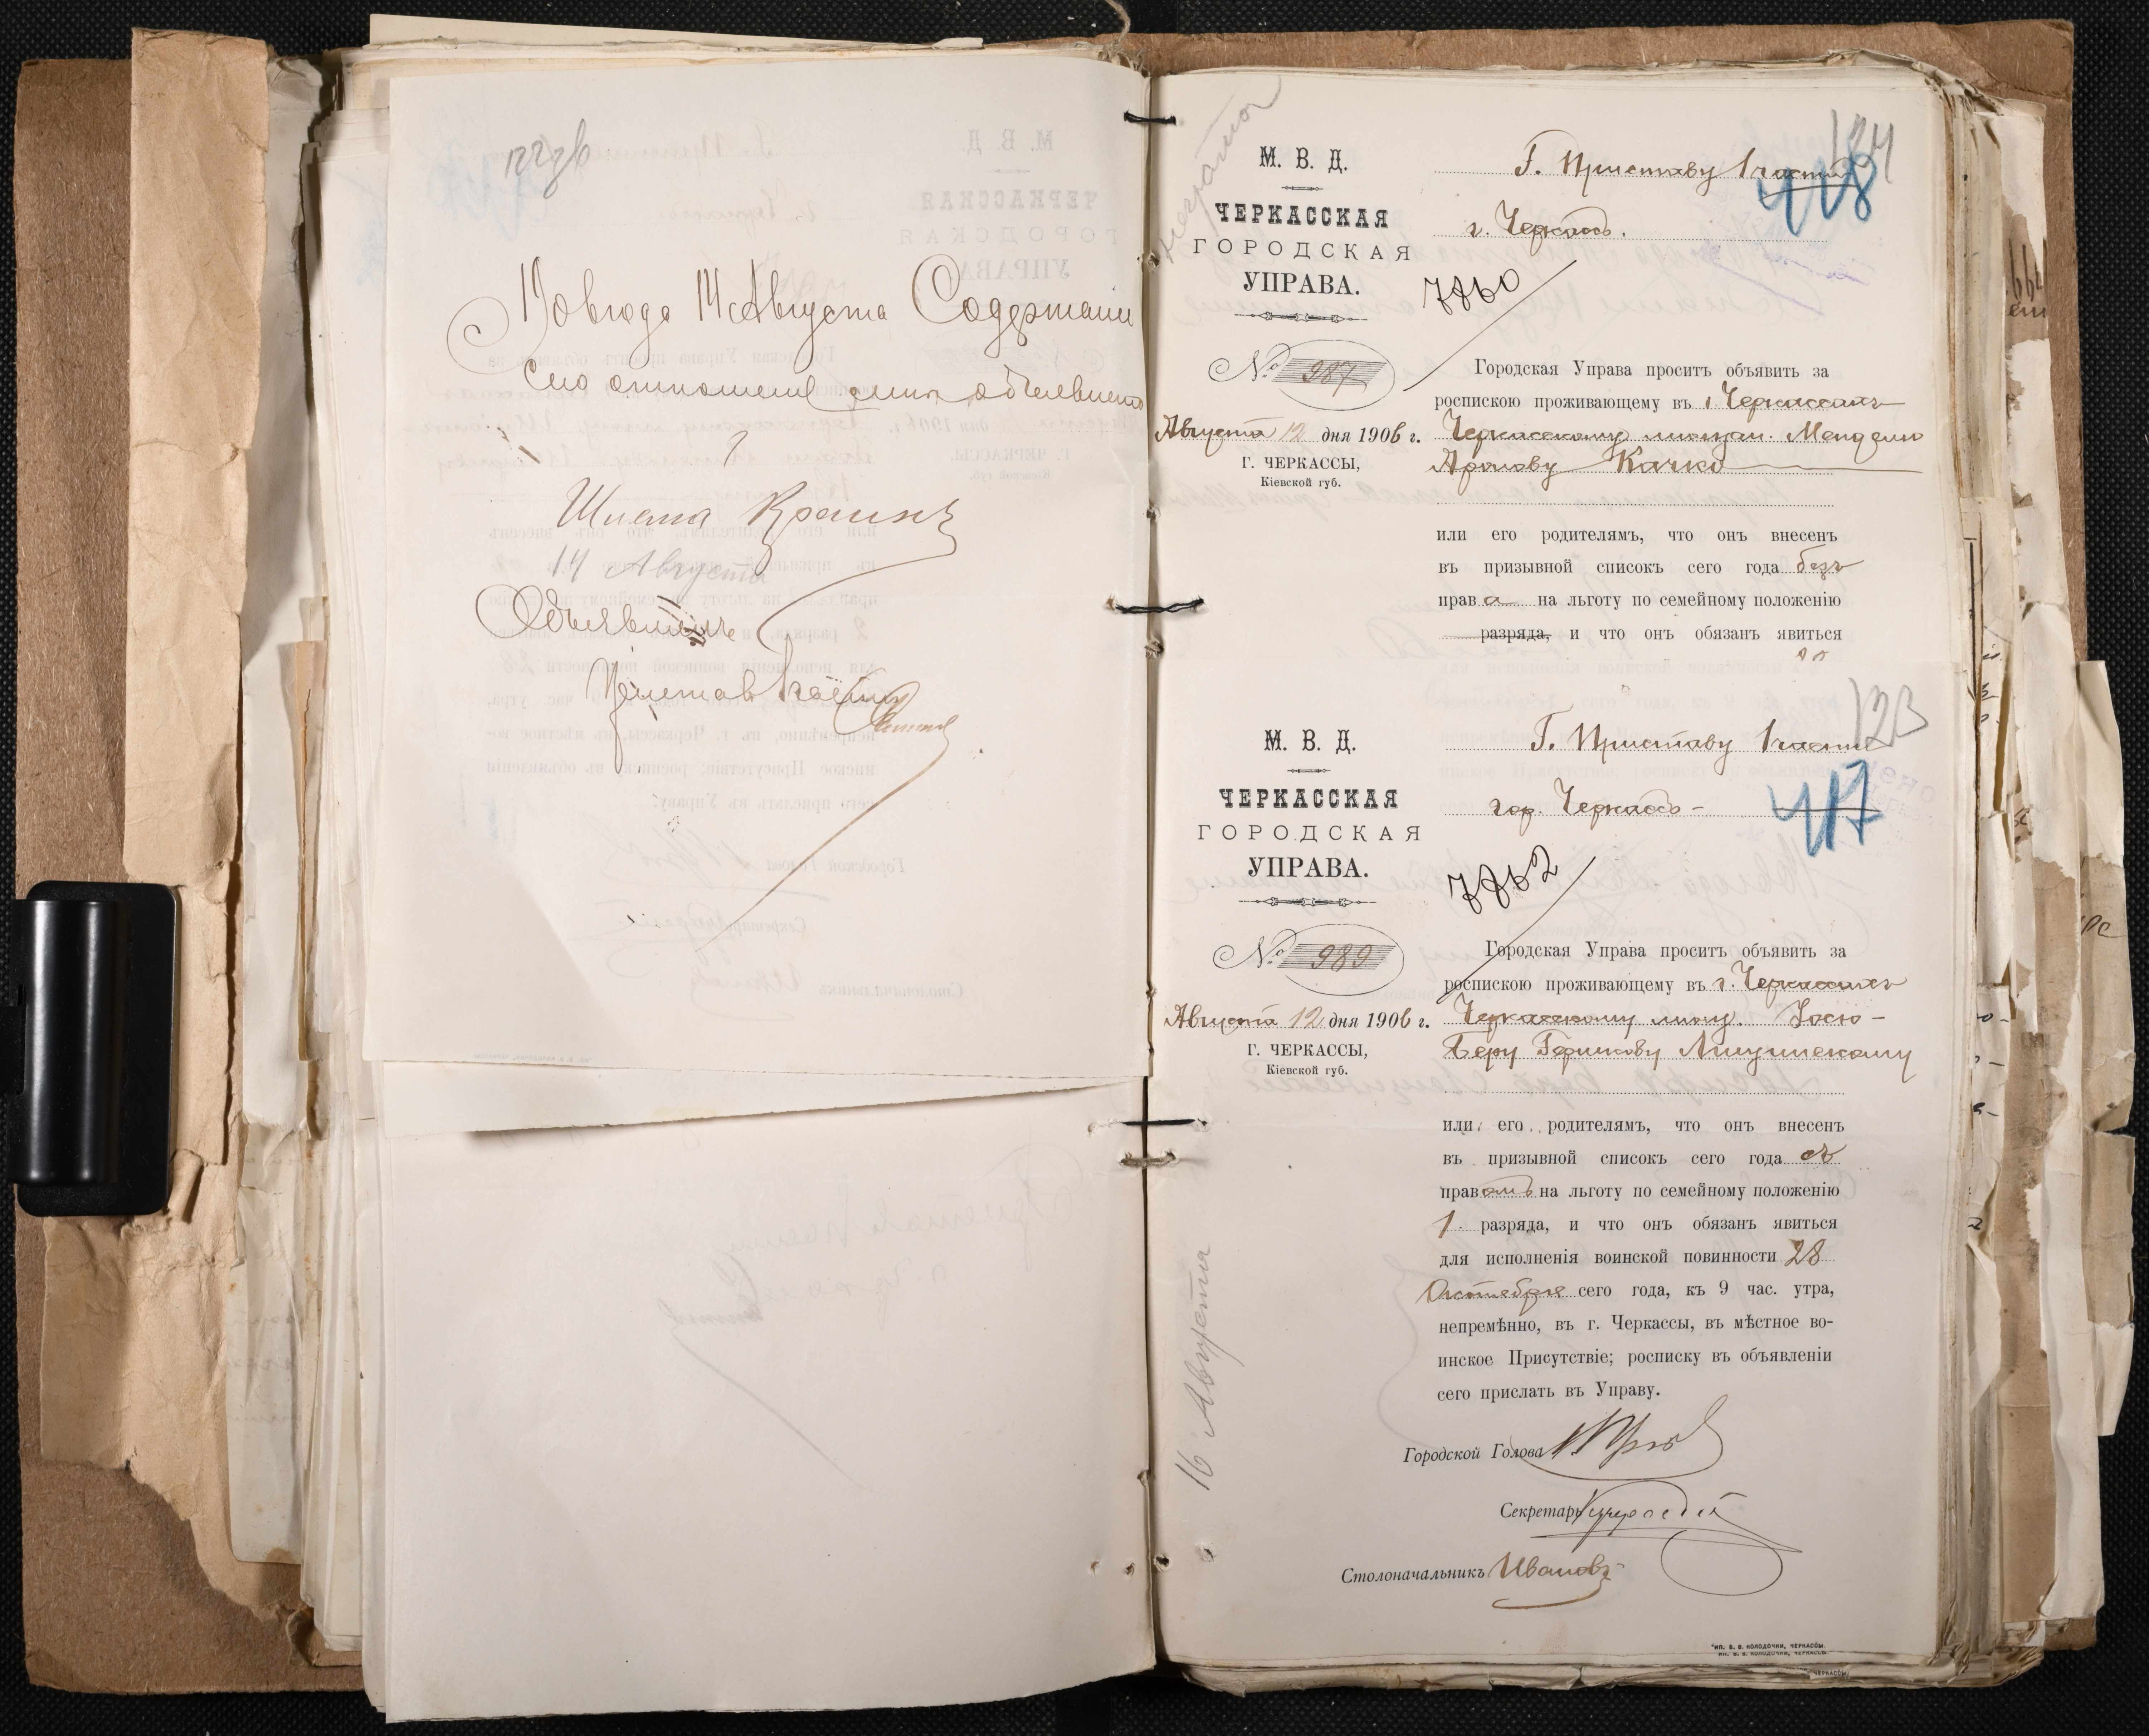 1906 года 14 Августа Содержание
сего отношения мне объявлено
Шлема Кра
14 Августа
Объявилъ
Приставъ 1 части
неграмот
124
М. В. Д.
ЧЕРКАССКАЯ
ГОРОДСКАЯ
УПРАВА.
№ 987
Августа 12 дня 1906 г.
Г. ЧЕРКАССЫ,
Кіевской губ.
Г. Приставу 1 части
418
г. Черкассъ.
7860
Городская Управа проситъ объявить за
роспискою проживающему въ г. Черкассахъ
Черкасскому мѣщан. Менделю
Аронову Качко
или его родителямъ, что онъ внесенъ
въ призывной списокъ сего года безъ
права на льготу по семейному положенію
разряда, и что онъ обязанъ явиться
123
М. В. Д.
ЧЕРКАССКАЯ
ГОРОДСКАЯ
УПРАВА.
№ 989
Августа 12 дня 1906 г.
Г. ЧЕРКАССЫ,
Кіевской губ.
Г. Приставу 1 части
417
гор. Черкассъ
7862
Городская Управа проситъ объявить за
роспискою проживающему въ г. Черкассахъ
Черкасскому мѣщ. Іосю-
Беру Гершкову
или его родителямъ, что онъ внесенъ
въ призывной списокъ сего года съ
правомъ на льготу по семейному положенію
1 разряда, и что онъ обязанъ явиться
для исполненія воинской повинности 28
Октября сего года, къ 9 час. утра,
непремѣнно, въ г. Черкассы, въ мѣстное во-
инское Присутствіе; росписку въ объявленіи
сего прислать въ Управу.
16 Августа
Городской Голова
Секретарь
Столоначальникъ Ивановъ
ТИП. В. В. КОЛОДОЧКИ, ЧЕРКАССЫ.